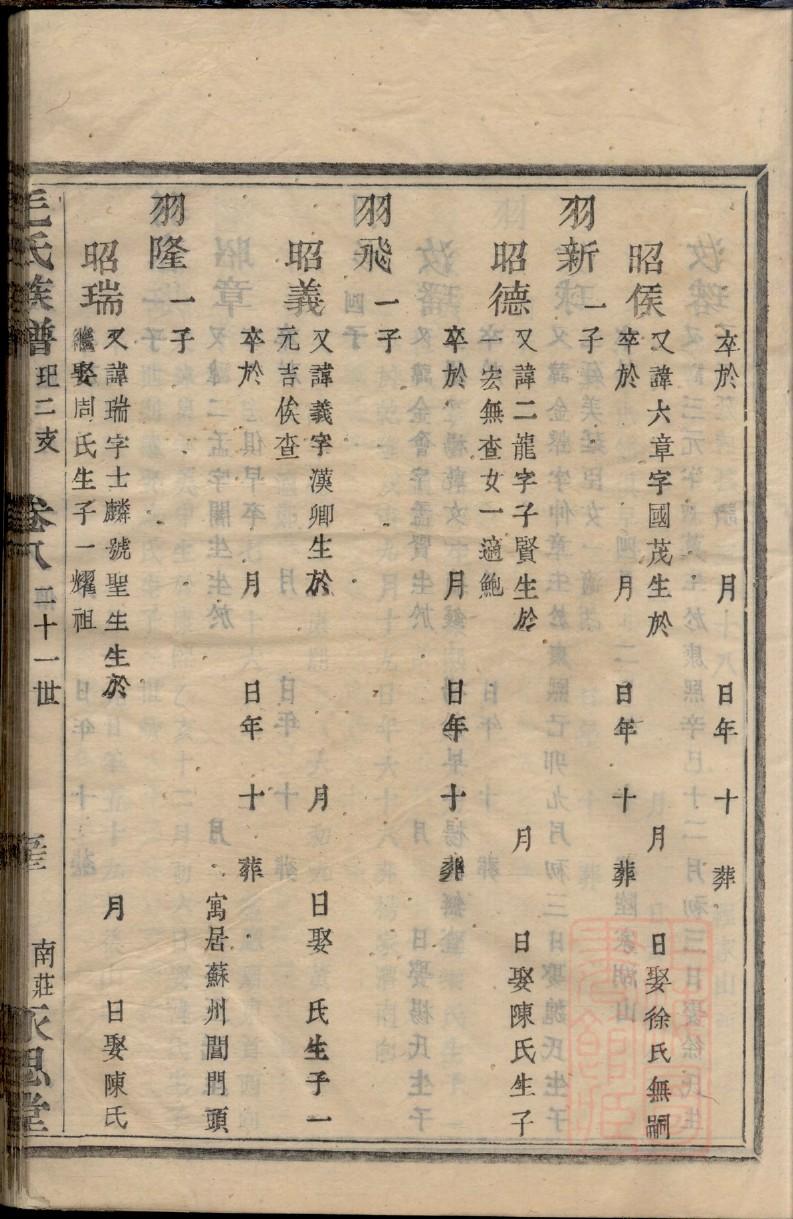 卒於　月　日年　十　葬
昭侯　又諱六章字國茂生於　月　日娶徐氏無嗣
卒於　月　日年　十　葬
羽新　一子
昭德　又諱二龍字子賢生於　月　日娶陳氏生子
一宏無查女一適鮑
卒於　月　日年　十　葬
羽飛　一子
昭義　又諱義字漢卿生於　月　日娶　氏生子一
元吉俟查
卒於　月　日年　十　葬
寓居蘇州閶門頭
羽隆　一子
昭瑞　又諱瑞字士麟號聖生生於　月　日娶陳氏
繼娶周氏生子一耀祖
毛氏族譜　玘二支　卷八　二十一世　南莊　永思堂